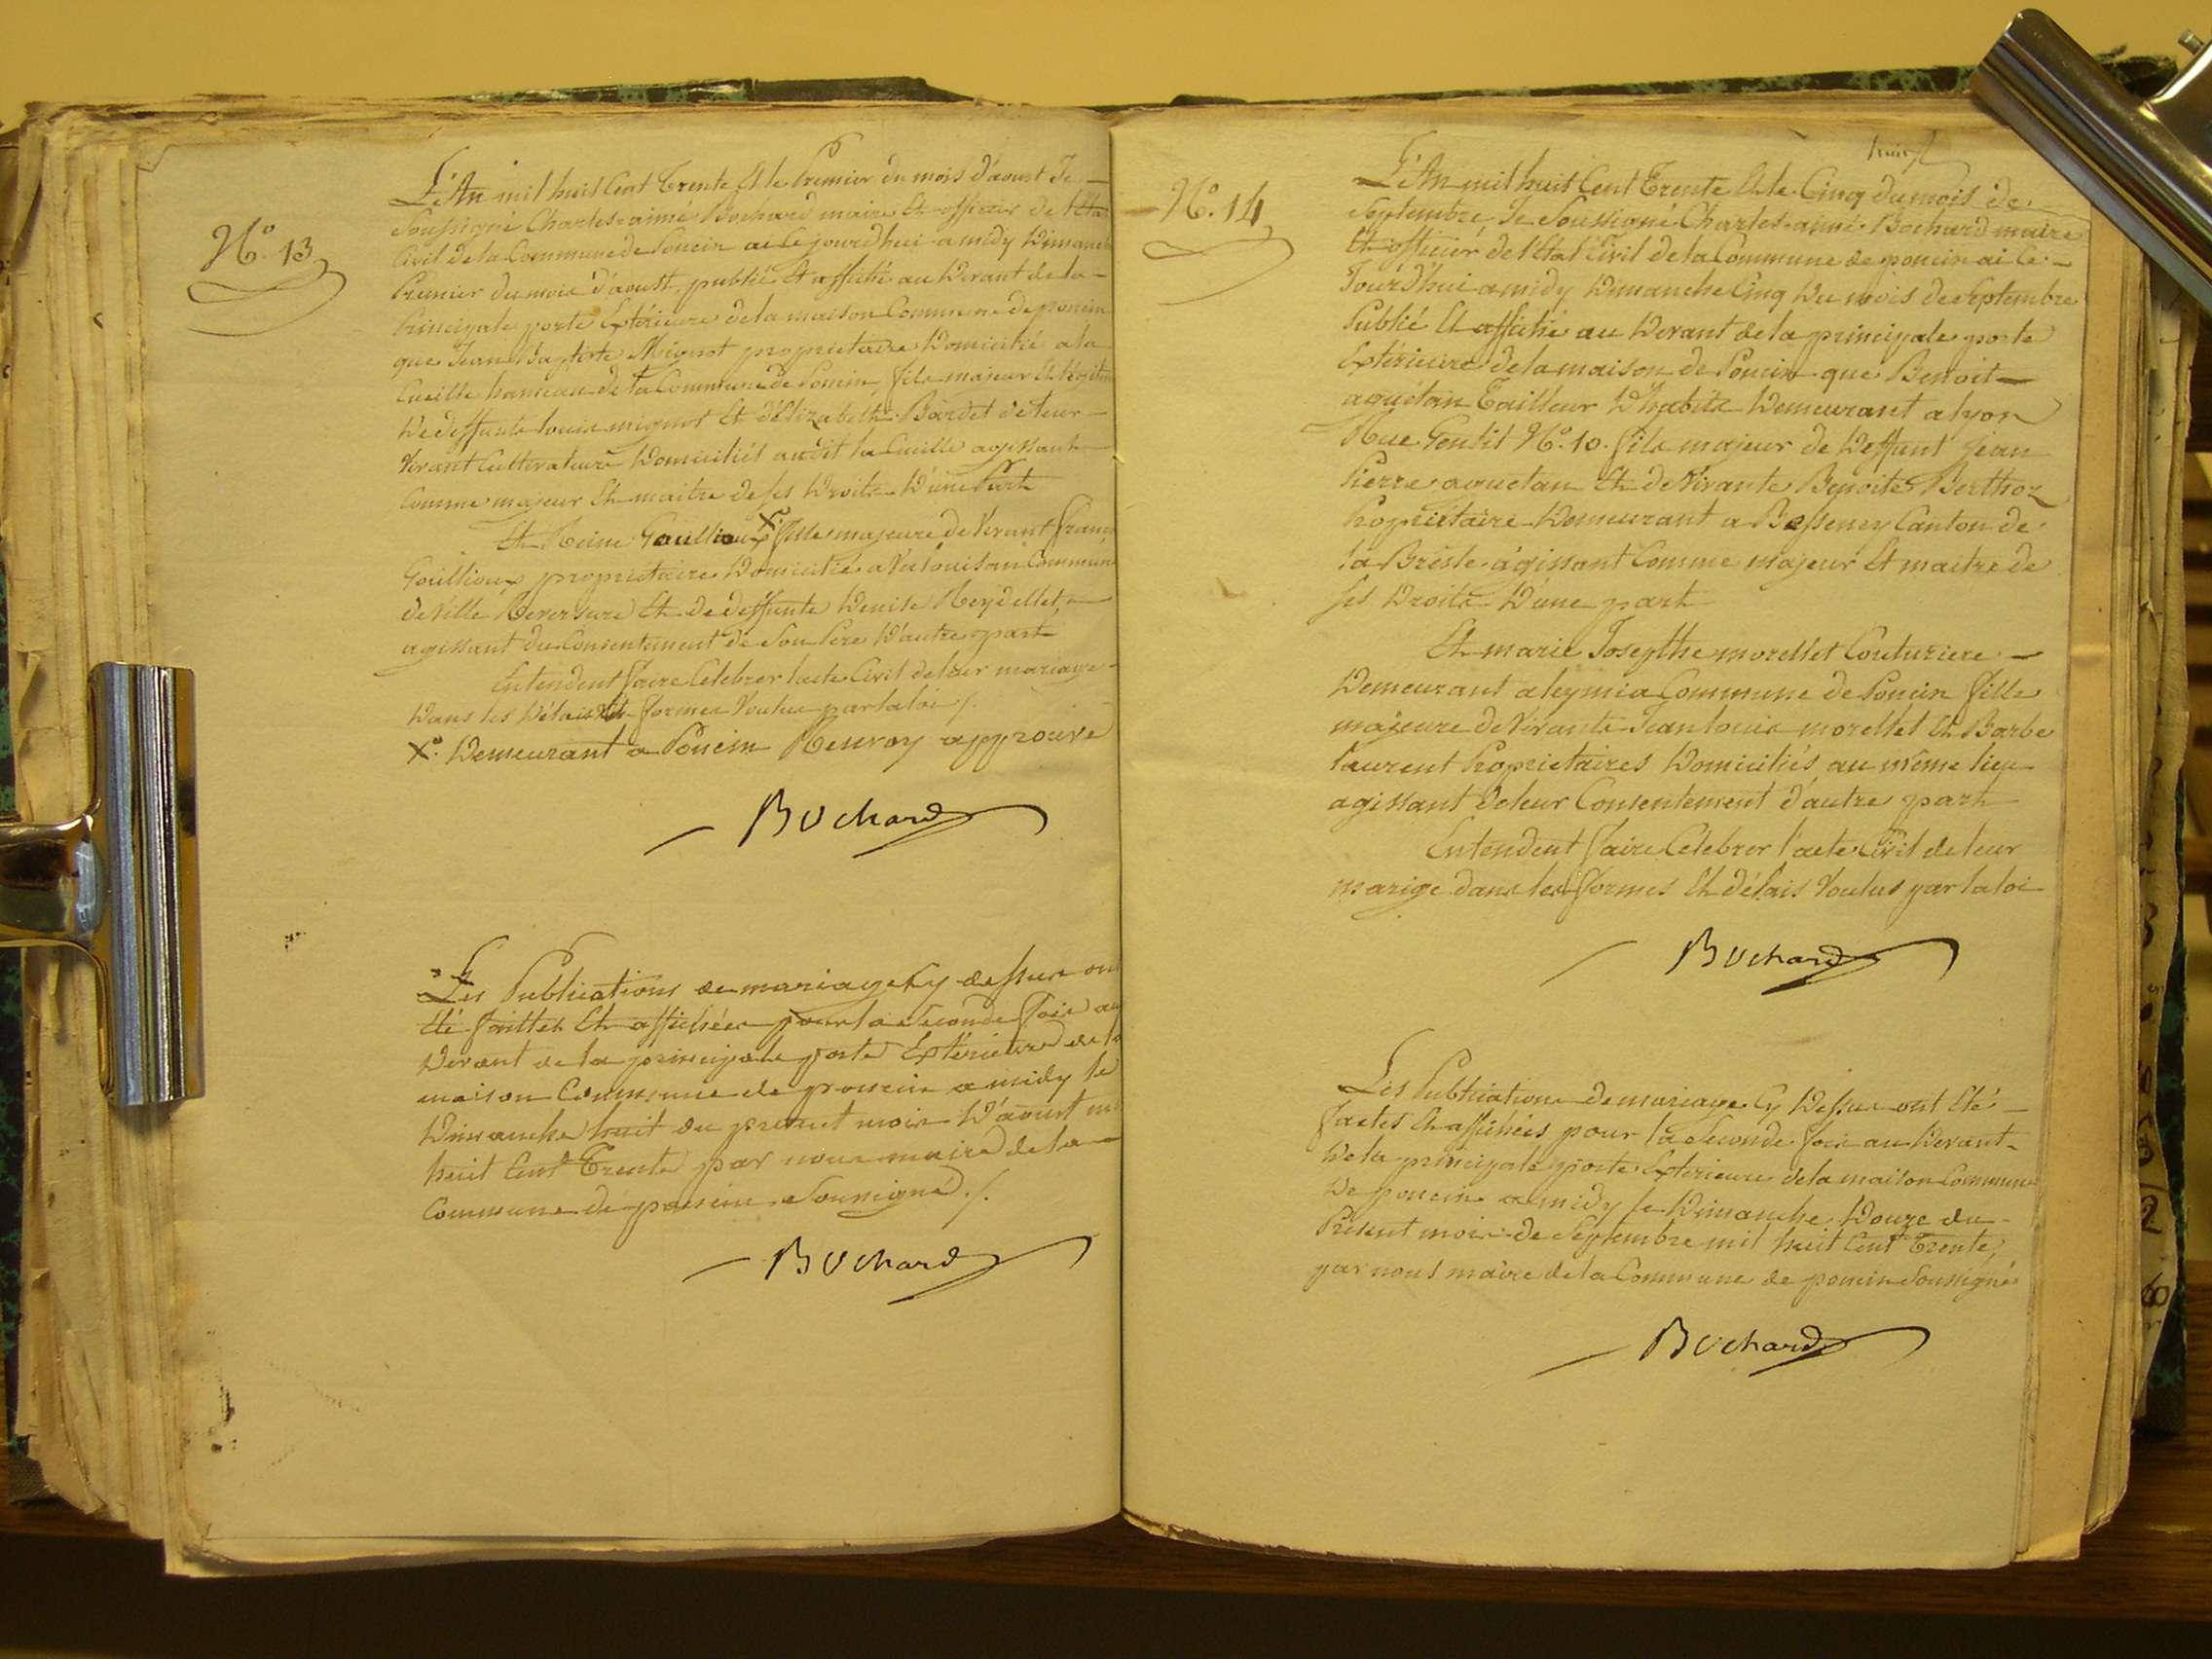 N.º 13
L'An mil huit Cent Trente Et le Premier du mois d'aoust Je
Soussigné Charles=aimé Bochard maire Et officier de l'Etat
Civil de la Commune de Poncin ai Ce jourd'hui a midy Dimanche
Premier du mois d'aoust publié Et affiché au Devant de la
Principale porte Extérieure de la maison Commune de poncin
que Jean Baptiste Mignot proprietaire Domicilié a la
Cueille hameau de la Commune de Poncin, fils majeur Et légitime
De deffunts louis mignot Et d'Elizabeth Bardet de leur
Vivant Cultivateurs Domiciliés audit la Cueille agissant
Comme majeur Et maitre de ses Droits D'une Part
Et Reine Goullioux X.º fille majeure de Vivant françois
Goullioux proprietaire Domicilié a Commune
de Ville Reversure Et de deffunte Denise Reydellet,
agissant du Consentement de Son Pere D'autre part
Entendent faire Celebrer l'acte Civil de leur mariage
Dans les Délais Et formes Voulus par la loi /.
X.º Demeurant a Poncin Renvoy approuvé
Bochard
Les Publications de mariage Cy dessus ont
été faittes Et affichées pour la Seconde fois au
Devant de la principale porte Extérieure de la
maison Commune de poncin a midy le
Dimanche huit du present mois D'aoust mil
huit Cent Trente par nous maire de la
Commune de poncin Soussigné /.
Bochard
huit
N.º 14
L'An mil huit Cent Trente Et le Cinq du mois de
Septembre, Je Soussigné Charles=aimé Bochard maire
Et officier de l'Etat Civil de la Commune de poncin ai Ce
Jourd'hui a midy Dimanche Cinq Du mois de Septembre
Publié Et affiché au Devant de la principale porte
Extérieure de la maison de Poncin que Benoit
aguétan Tailleur D'habits Demeurant a lyon
Rue Gentil N.º 10. fils majeur de Deffunt Jean
Pierre aguetan Et de Vivante Benoite Berthoz
Proprietaire Demeurant a Besseney Canton de
la Bresle agissant Comme majeur Et maitre de
ses Droits D'une part
Et marie Josephte morellet Couturiere
Demeurant a leymia Commune de Poncin fille
majeure de Vivants Jean louis morellet Et Barbe
laurent Proprietaires Domiciliés au même lieu
agissant de leur Consentement d'autre part
Entendent faire Celebrer l'acte Civil de leur
marige dans les formes Et délais Voulus par la loi
Bochard
Les Publications de mariage Cy Dessus ont Eté
faites Et affichées pour la Seconde fois au Devant
De la principale porte Exterieure de la maison Commune
De poncin a midy le Dimanche Douze du
Present mois de Septembre mil huit Cent Trente,
par nous maire de la Commune de poncin Soussigné
Bochard